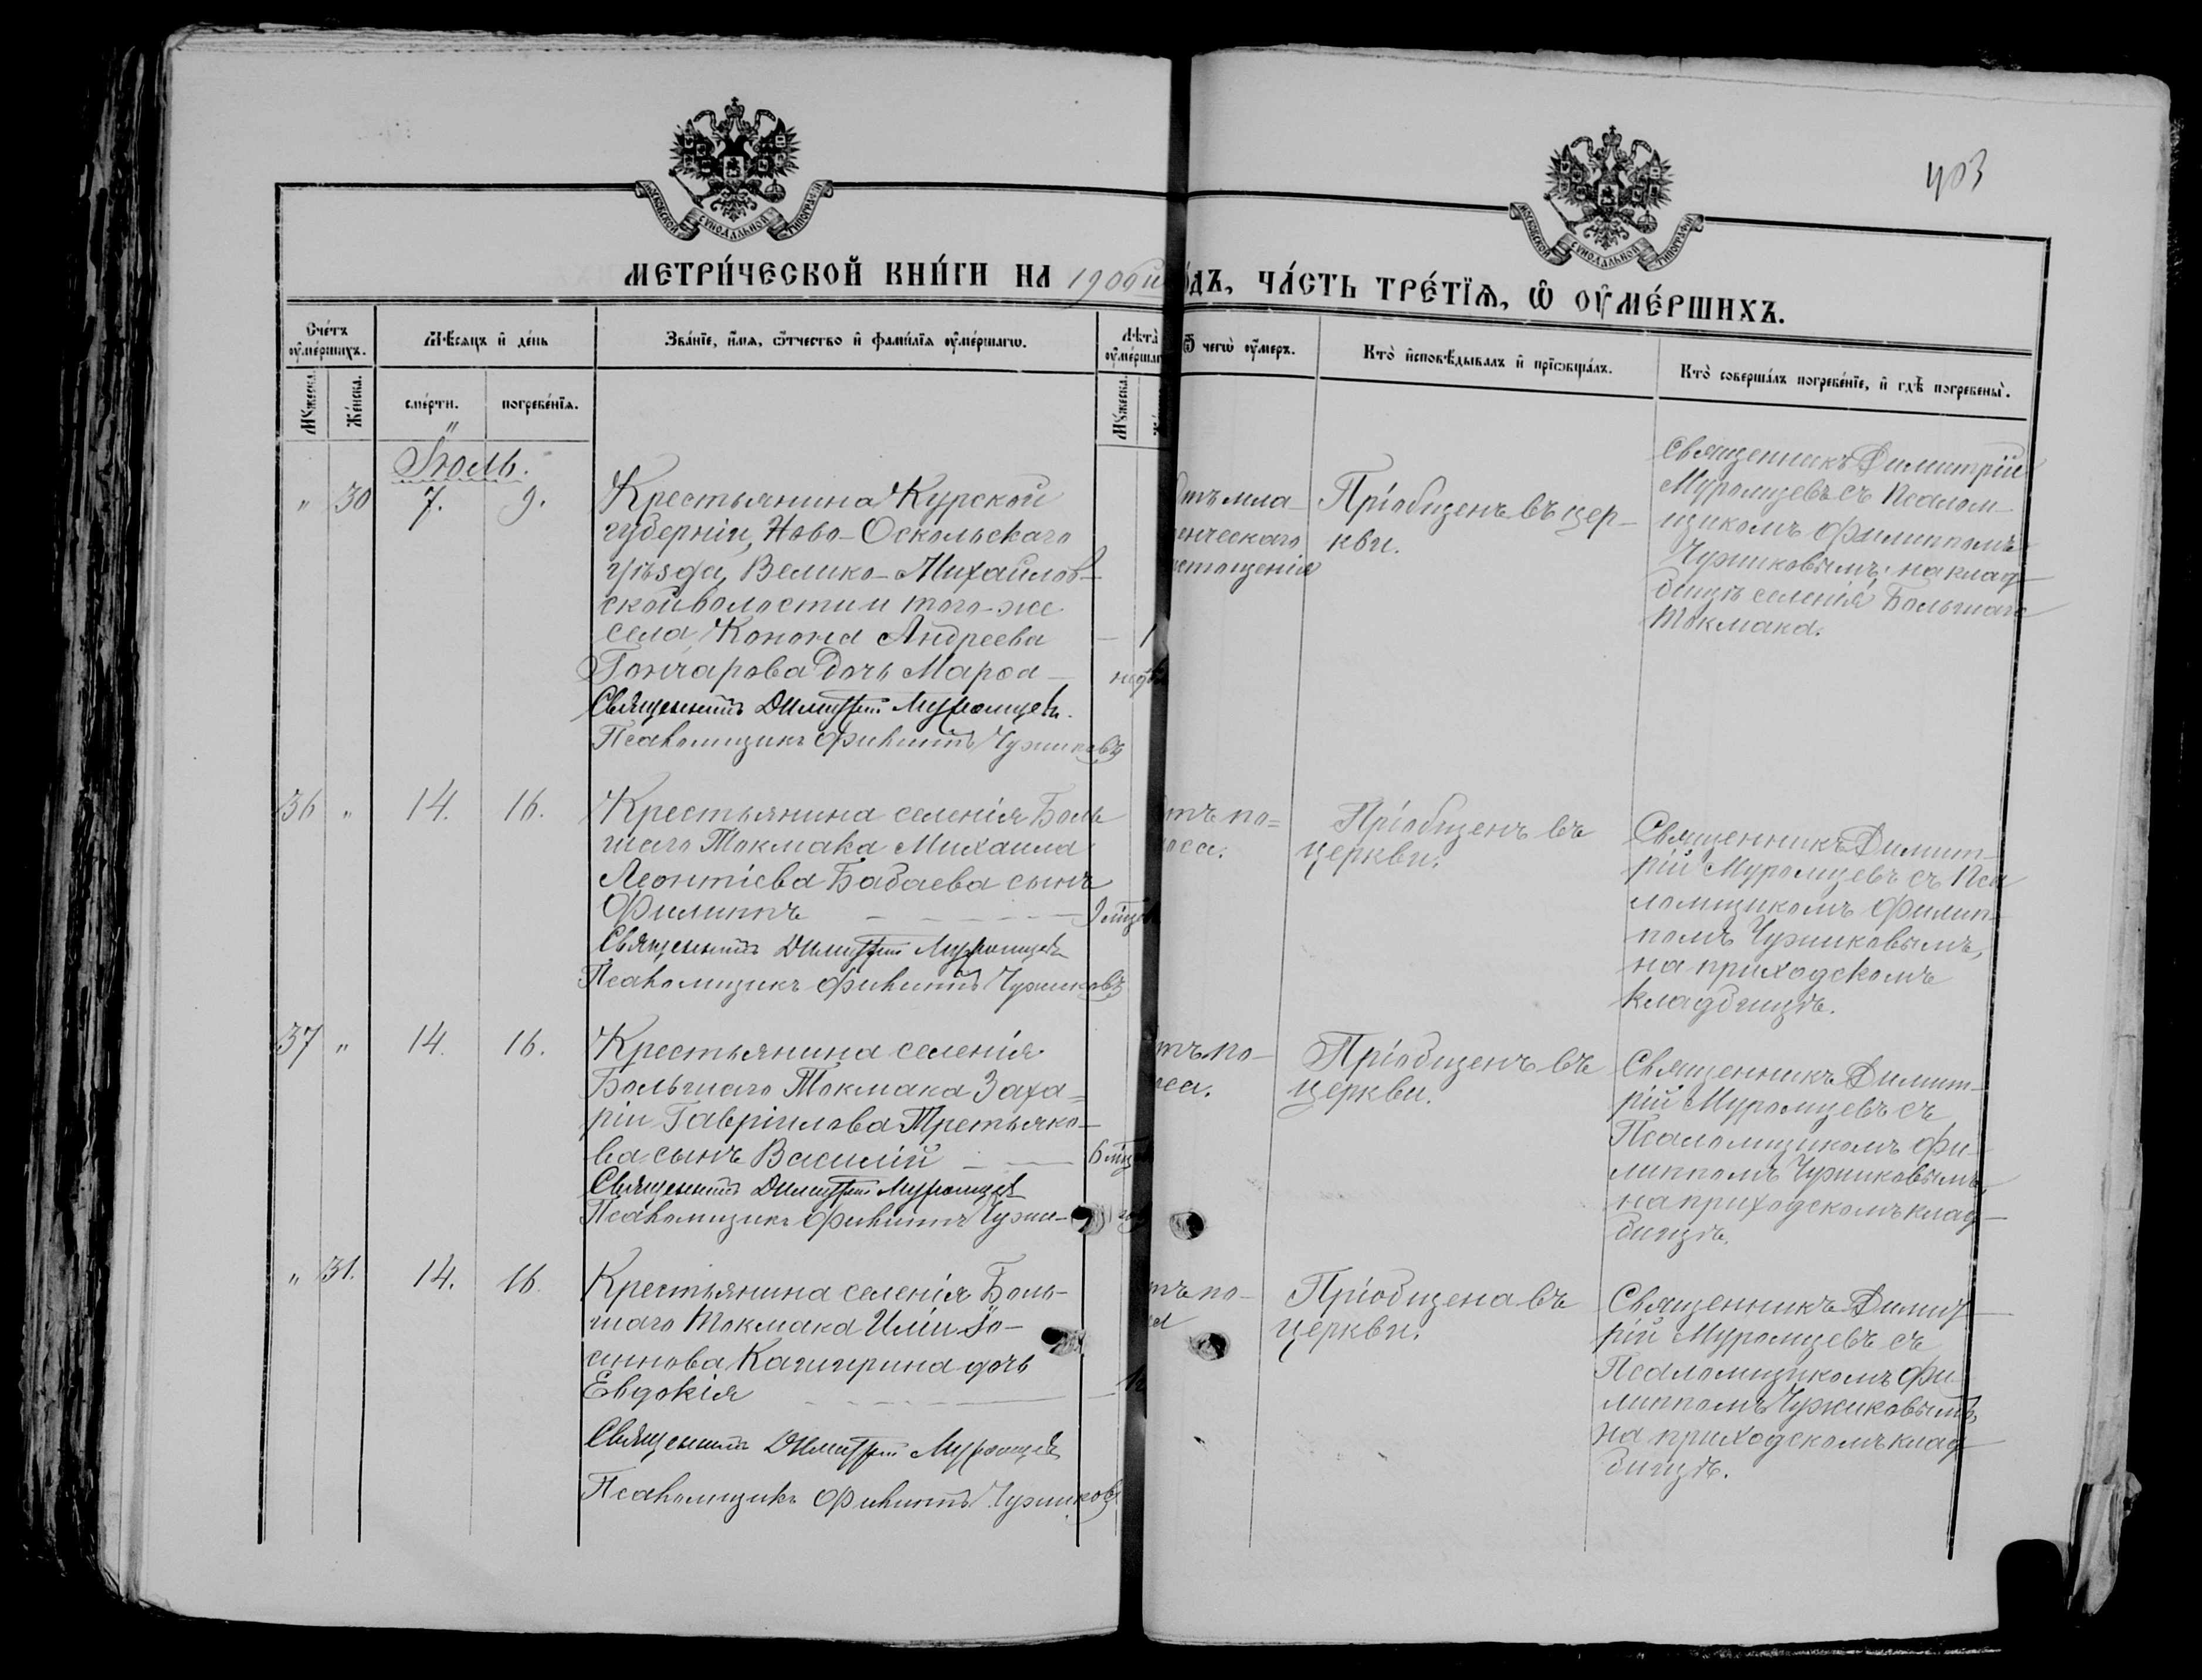 403
МОСКОВСКОЙ СѴНОДАЛЬНОЙ ТИПОГРАФІИ
МОСКОВСКОЙ СѴНОДАЛЬНОЙ ТИПОГРАФІИ
МЕТРИ́ЧЕСКОЙ КНИ́ГИ НА 1906й
ОДЪ, ЧА́СТЬ ТРЕ́ТІѦ, Ѽ ОУ҆МЕ́РШИХЪ.
Сче́тъ оу҆ме́ршихъ.
Мѣ́сяцъ и҆ де́нь
Зва́ніе, и҆́мя, ѻ҆́тчество и҆ фами́лія оу҆ме́ршагѡ.
Лѣ́та оу҆ме́ршаг
Ѿ чегѡ̀ оу҆́меръ.
Кто̀ и҆сповѣ́дывалъ и҆ пріѡбща́лъ.
Кто̀ соверша́лъ погребе́ніе, и҆ гдѣ̀ погребены̀.
Мꙋ́жеска.
Же́нска.
сме́рти.
погребе́нія.
Мꙋ́жеска.
Іюль.
" 30 7. 9.
Крестьянина Курской
губерніи, Ново-Оскольскаго
уѣзда, Велико-Михайлов-
ской волости и того-же
села, Конона Андреева — 1
Гончарова дочь Марѳа —
Священникъ Димитрій Муромцевъ.
Псаломщикъ Филиппъ Чужиковъ
отъ мла-
енческаго
истощенія
Пріобщенъ въ цер-
кви.
Священникъ Димитрій
Муромцевъ съ Псалом-
щикомъ Филиппомъ
Чужиковымъ; на клад-
бищѣ селенія Большаго
Токмака.
36 " 14. 16.
Крестьянина селенія Боль
шаго Токмака Михаила
Леонтіева Бабаева сынъ
Филиппъ — 9 мѣся
Священникъ Димитрій Муромцевъ
Псаломщикъ Филиппъ Чужиковъ
отъ по=
носа.
Пріобщенъ въ
церкви.
Священникъ Димит-
рій Муромцевъ съ Пса
ломщикомъ Филип-
помъ Чужиковымъ,
на приходскомъ
кладбищѣ.
37 " 14. 16.
Крестьянина селенія
Большаго Токмака Заха=
ріи Гавріилова Третьяко-
ва сынъ Василій — 6 мѣся
Священникъ Димитрій Муромцевъ
Псаломщикъ Филиппъ Чужи-
отъ по-
носа.
Пріобщенъ въ
церкви.
Священникъ Димит-
рій Муромцевъ съ
Псаломщикомъ Фи-
липпомъ Чужиковымъ,
на приходскомъ клад-
бищѣ.
" 31. 14. 16
Крестьянина селенія Боль-
шаго Токмака Иліи Іо-
Евдокія —
Священникъ Димитрій Муромцевъ
Псаломщикъ Филиппъ Чужиковъ
отъ по-
Пріобщена въ
церкви.
Священникъ Димит-
рій Муромцевъ съ
Псаломщикомъ Фи-
липпомъ Чужиковымъ,
на приходскомъ клад-
бищѣ.